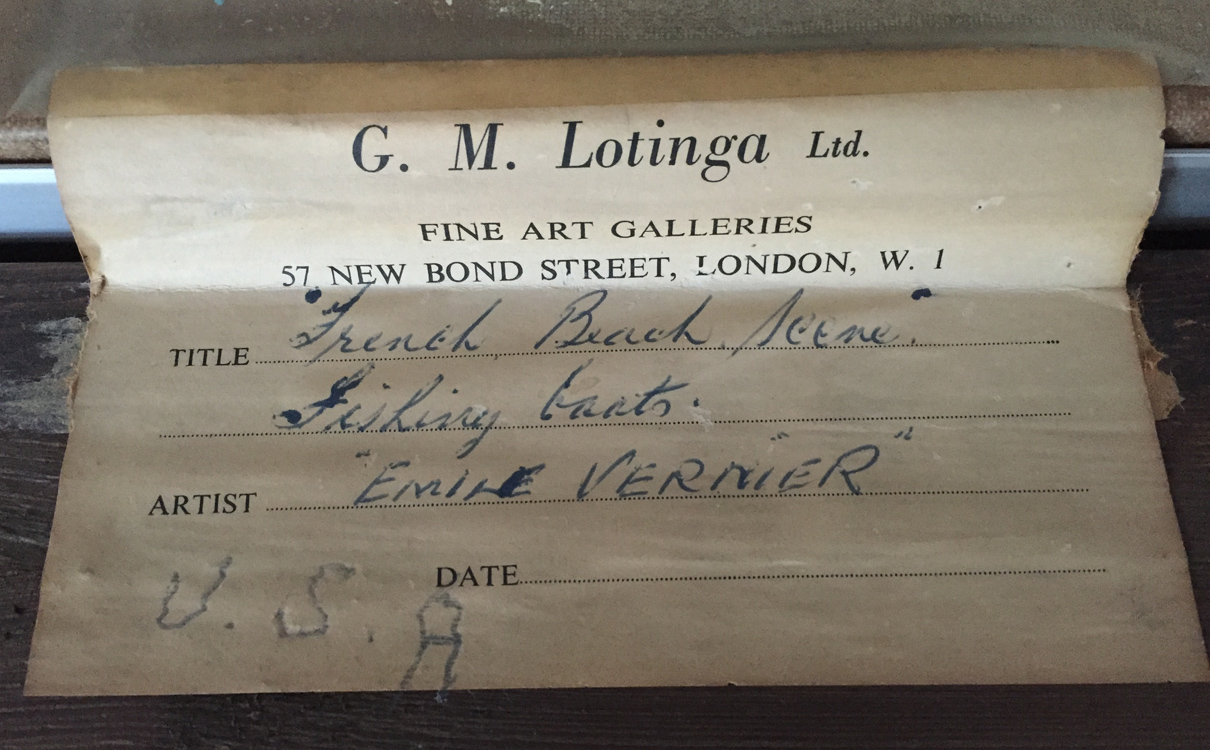 G. M. Lotinga Ltd.
FINE ART GALLERIES
57 NEW BOND STREET, LONDON, W. 1
TITLE "French Beach Scene".
Fishing boats.
ARTIST "EMILE VERNIER"
DATE
U. S. A